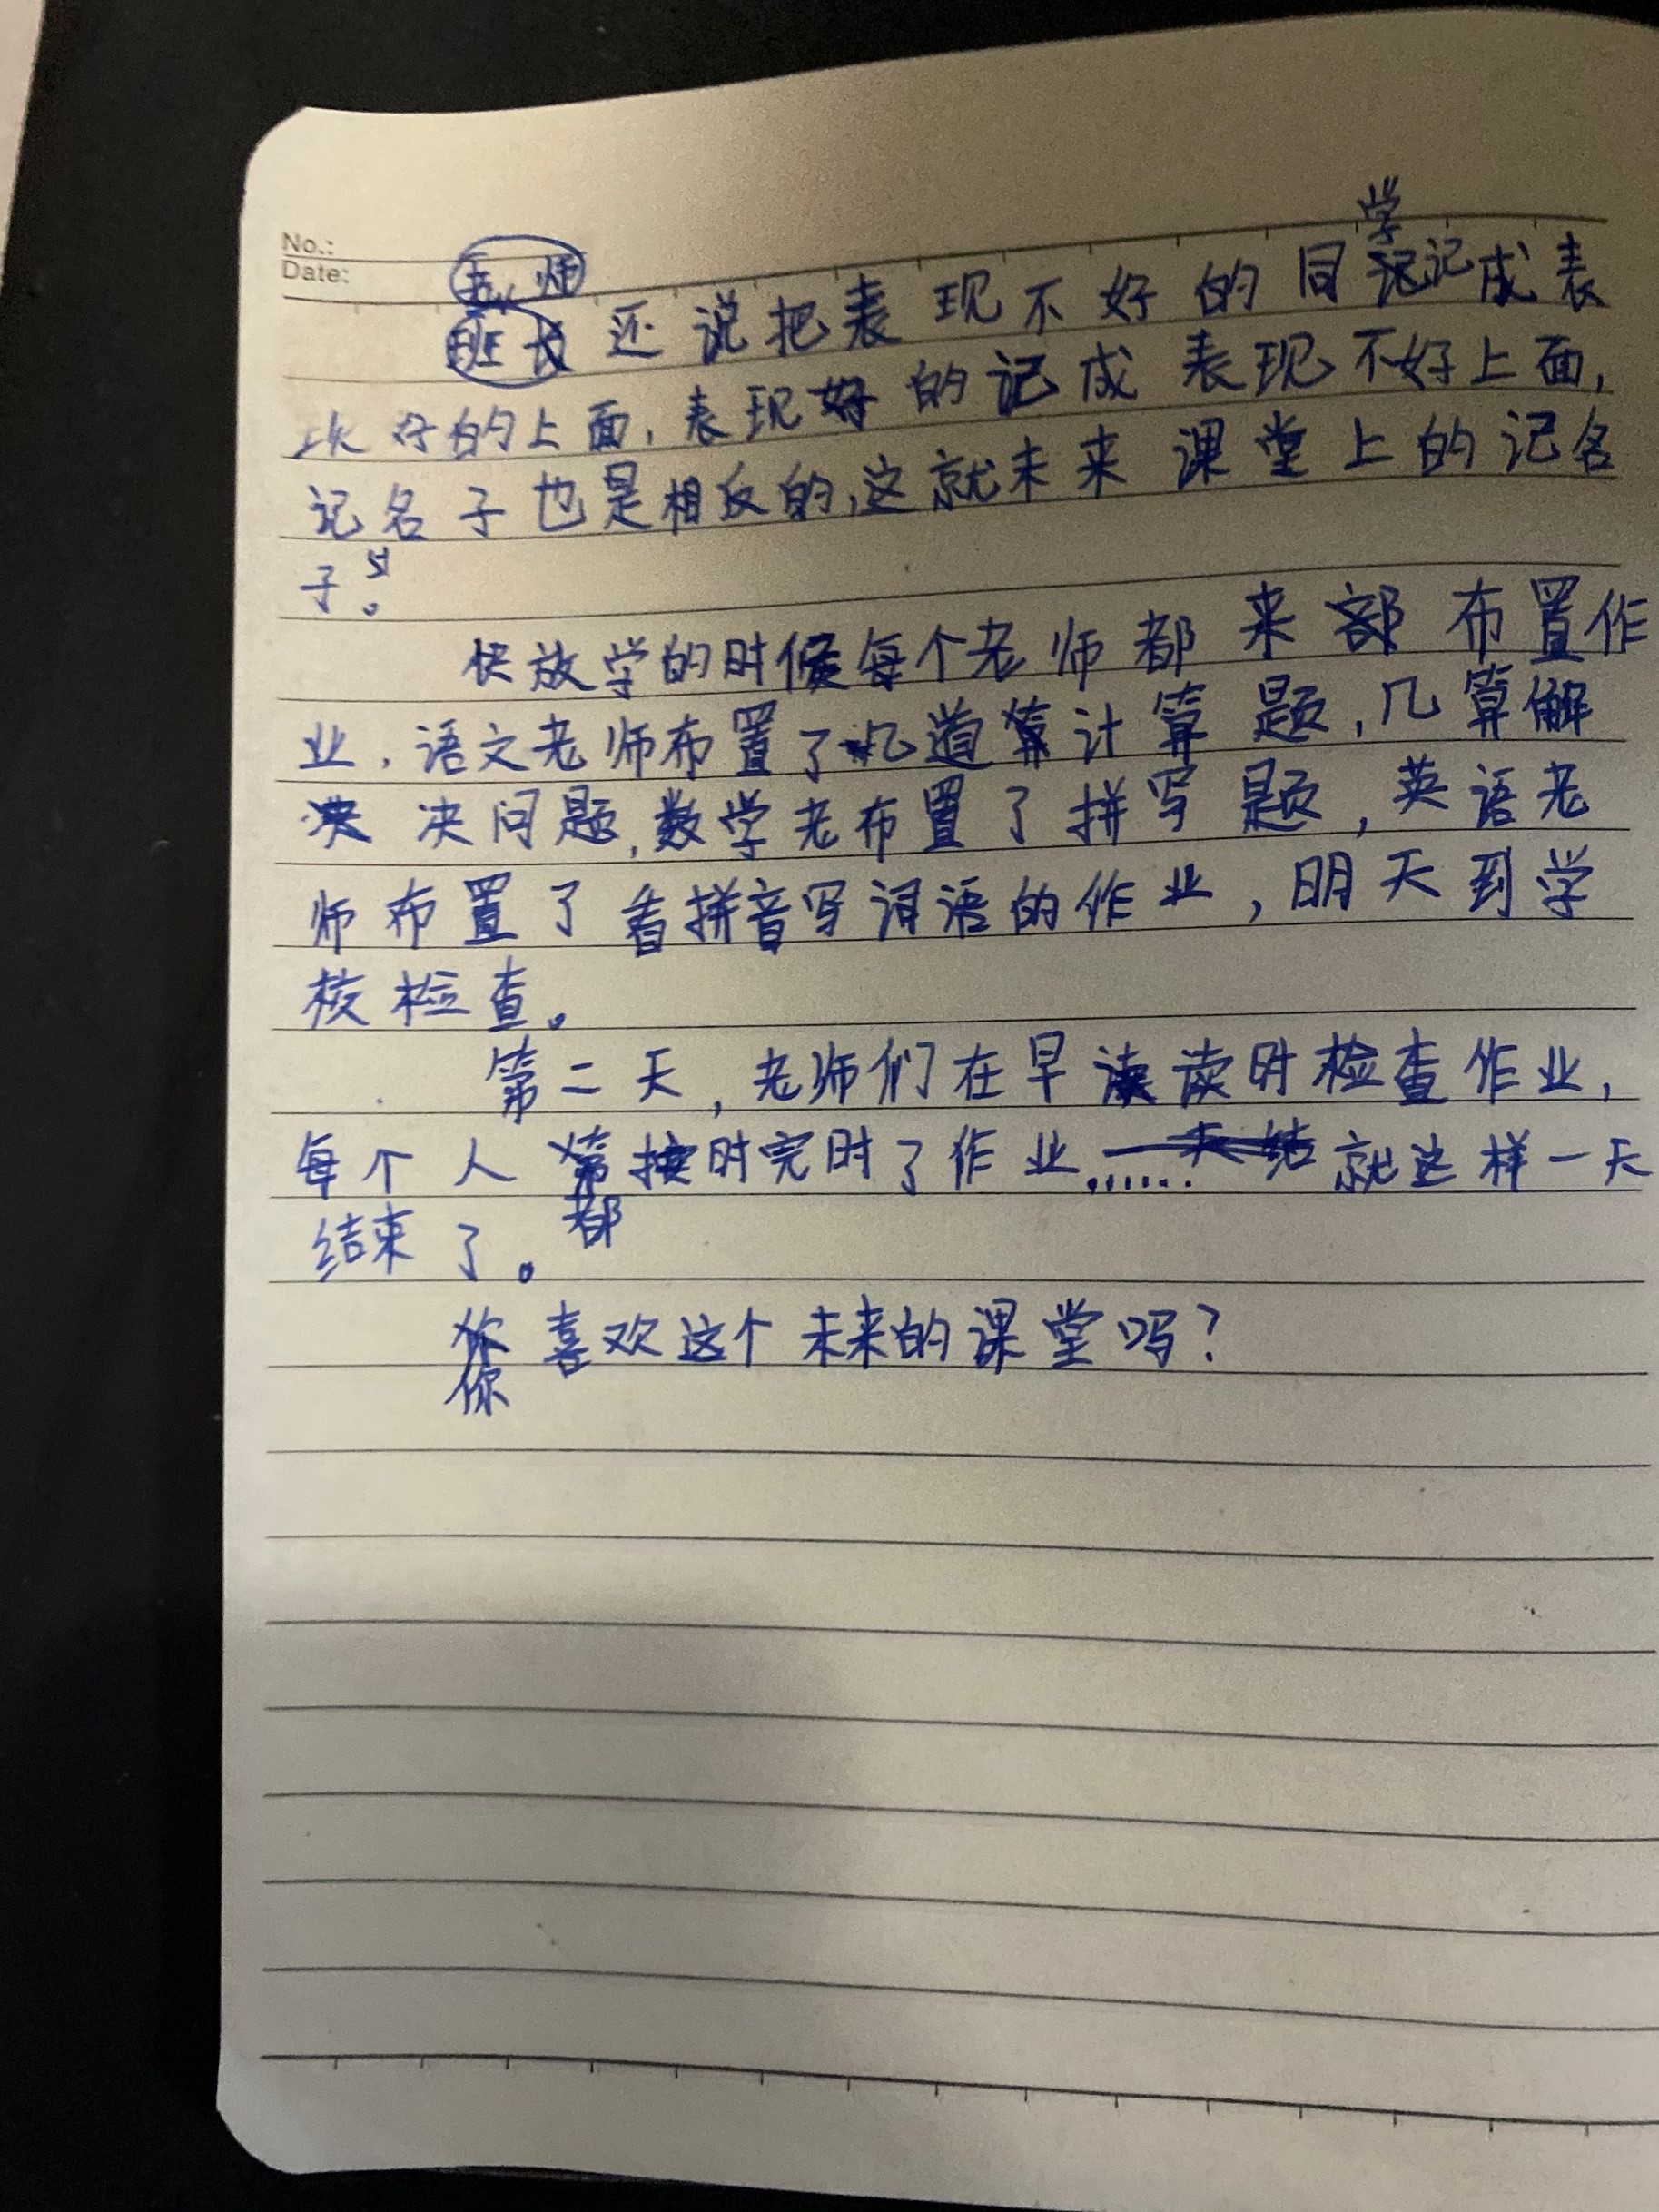 No.:
Date:
老师
学
班长还说把表现不好的同记成表
现好的上面,表现好的记成表现不好上面,
记名子也是相反的,这就未来课堂上的记名
子。
快放学的时候每个老师都来布置作
业,语文老师布置了几道算计算题,几算解
决问题,数学老布置了拼写题,英语老
师布置了看拼音写词语的作业,明天到学
校检查。
第二天,老师们在早读时检查作业,
每个人按时完时了作业……就这样一天
结束了。都
喜欢这个未来的课堂吗?
你